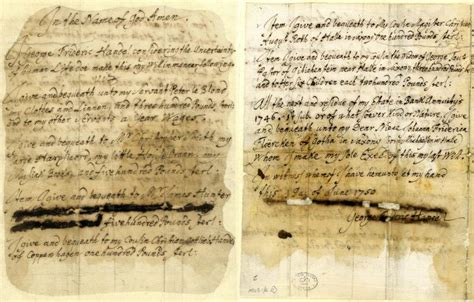 In the Name of God Amen.
I George Frideric Handel considering the Uncertainty
of human Life doe make this my Will in manner following
viz.
I give and bequeath unto my Servant Peter le Blond
Clothes and Linnen, and three hundred Pounds, Sterl:
and to my other Servants a Year Wages.
I give and bequeath to Mr Christopher Smith my
large Harpsicord, my little House Organ, my
Musick Books, and five hundred Pounds sterl:
Item I give and bequeath to Mr James Hunter
five hundred Pounds, sterl:
I give and bequeath to my Cousin Christian Gottlieb Handel
of Coppenhagen one hundred Pounds, sterl:
Item I give and bequeath to my Cousin Magister Christian
August Roth of Halle in Saxony one hundred Pounds sterl:
Item I give and bequeath to my Cousin the Widow of George Taust
Pastor of Giebichenstein near Halle in Saxony three hundred Pounds
and to Her six Children each two hundred Pounds, Sterl:
All the next and residue of my Estate in Bank Annuity's
1746. 1st Sub. or of what soever Kind or Nature, I
give and bequeath unto my Dear Niece Johanna Friderica
Floerchen of Gotha in Saxony born Michaelsen in Halle
Whom I make my Sole Exec: of this my last Will.
In witness whereof I have hereunto set my hand
this 1 Day of June 1750
George Frideric Handel